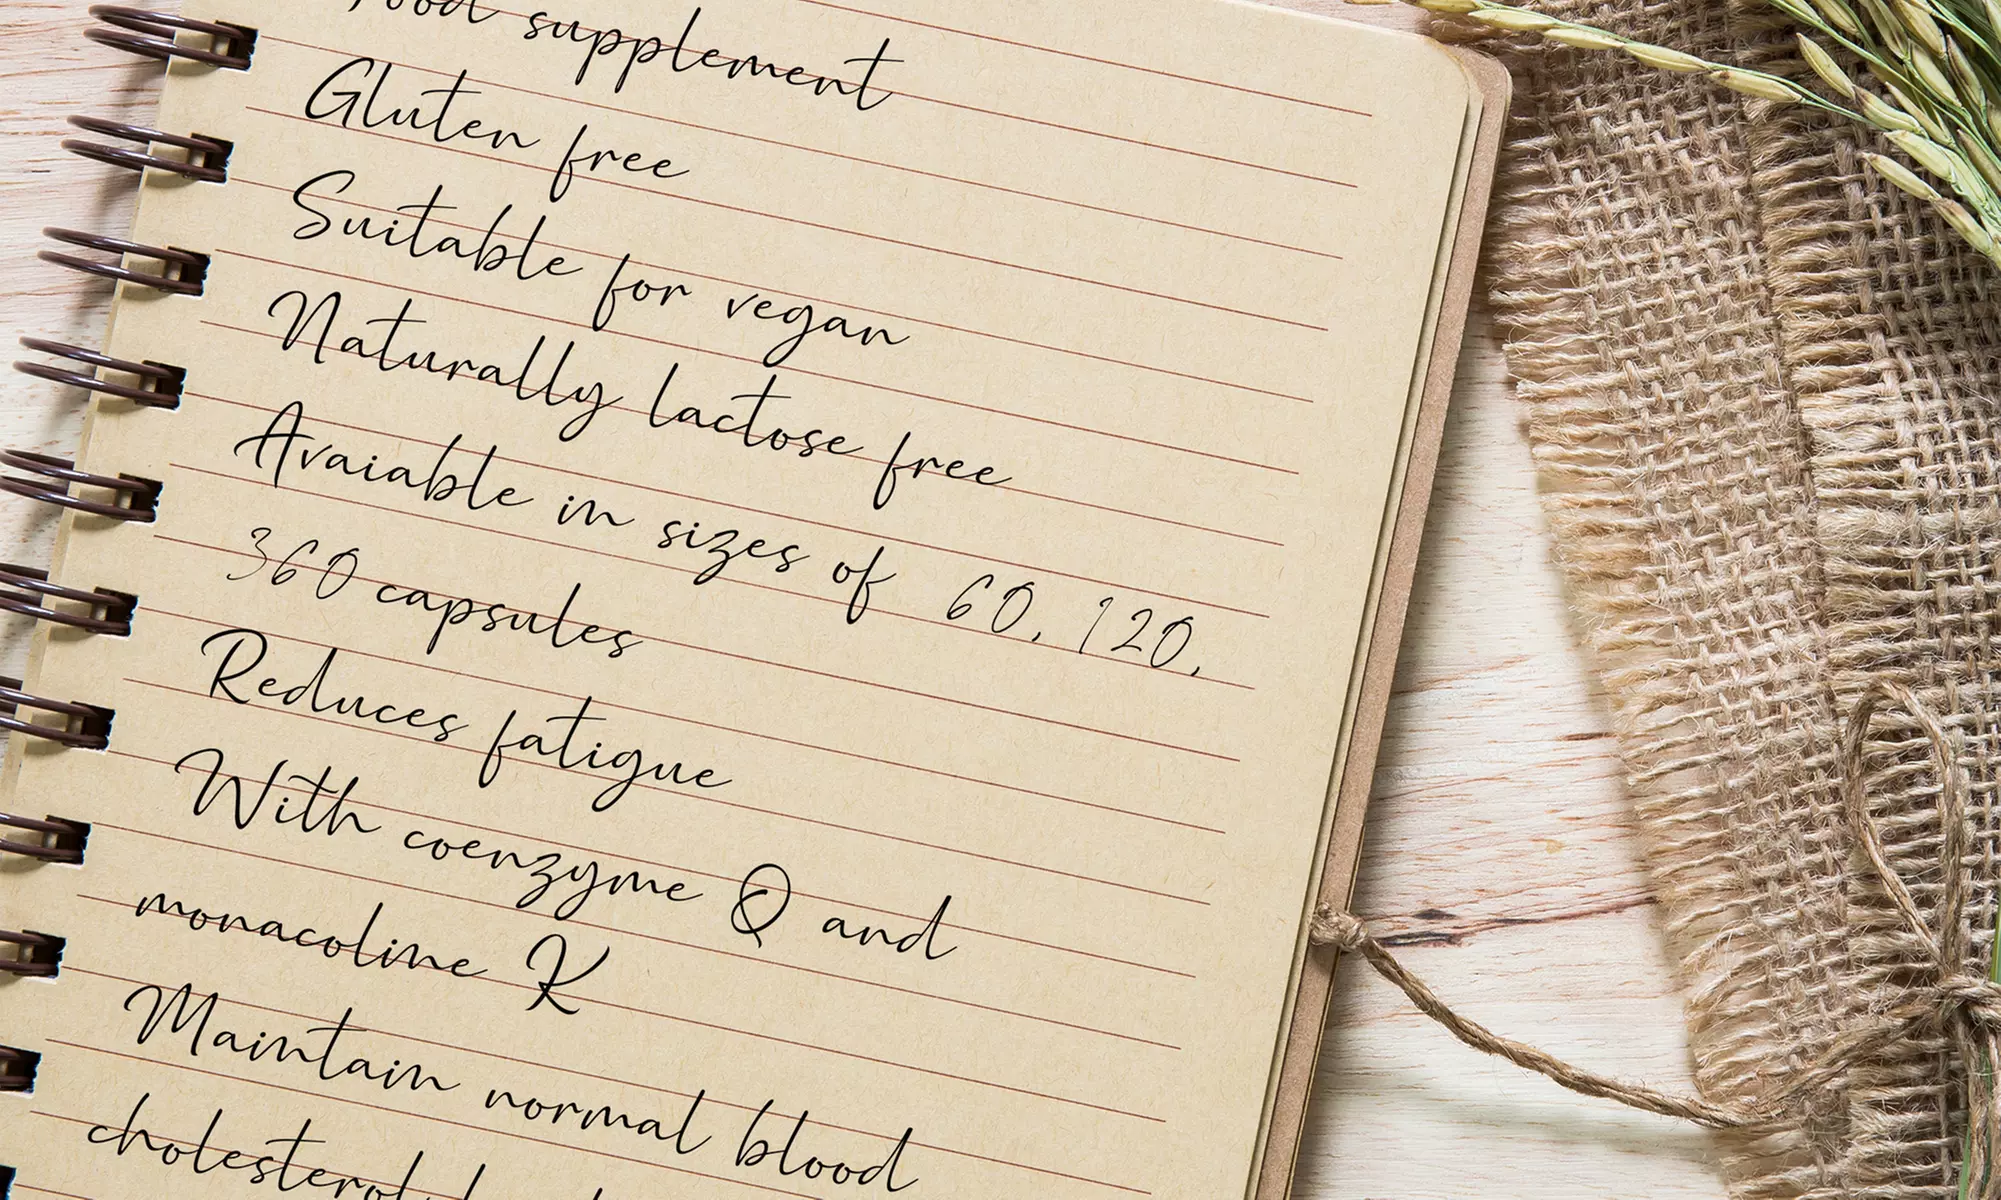 Food supplement
Gluten free
Suitable for vegan
Naturally lactose free
Avaiable in sizes of 60, 120,
360 capsules
Reduces fatigue
With coenzyme Q and
monacoline K
Maintain normal blood
cholesterol